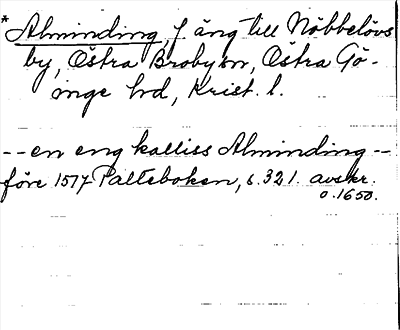 *Alminding, f. äng till Nöbbelövs
by, Östra Broby sn, Östra Gö-
inge hd, Krist. l.
-- en eng kalliss Alminding --
före 1517 Palteboken, s. 321. avskr.
o. 1650.